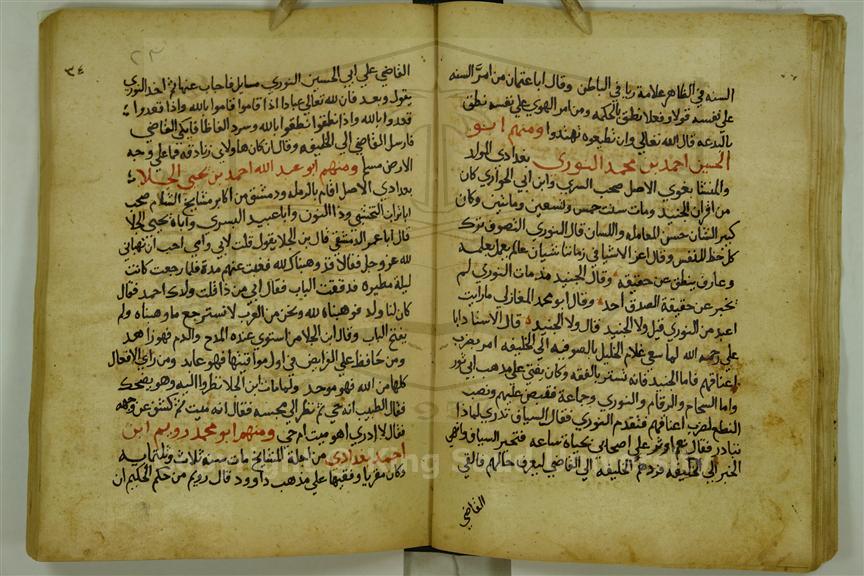 السنه في الظاهر علامة ريا في الباطن وقال ابا عثمان من امرّ السنه
على نفسه قولا وفعلا نطق بالحكمه ومن امر الهوي علي نفسه نطق
بالبدعه قال الله تعالي وان تطيعوه تهتدوا ومنهم ابو
الحسين احمد بن محمد النوري بغدادي المولد
والمنشا بغوي الاصل صحب السري وابن ابي الحواري كان
من اقران الجنيد ومات سنت خمس وتسعين وماتين وكان
كبير الشان حسن المعامله واللسان قال النوري التصوف ترك
كل حظ للنفس وقال اعز الاشيا في زماننا شيان عالم يعمل بعلمه
وعارف ينطق عن حقيقه وقال الجنيد منذ مات النوري لم
يخبر عن حقيقة الصدق احد وقال ابو محمد المغازلي ما رايت
اعبد من النوري قيل ولا الجنيد قال ولا الجنيد قال الاستاد ابا
علي رحمه الله لما سعي غلام الخليل بالصوفيه الي الخليفه امر بضرب
اعناقهم فاما الجنيد فانه تستر بالفقه وكان يفتي علي مدهب ابي ثور
واما السحام والرقام والنوري وجماعة فقبض عليهم ونصب
النطع لضرب اعناقهم فتقدم النوري فقال السياف تدري لماذا
تبادر فقال نعم اوثر علي اصحابي بحياة ساعه فتحير السياف وانهي
الخبر الي الخليفه فردهم الخليفه الي القاضي ليعرف حالهم فالقي
القاضي
٣٤
٢٣
القاضي علي ابي الحسين النوري مسايل فاجاب عنها ثم اخد النوري
يقول وبعد فان لله تعالي عبادا اذا قاموا قاموا بالله واذا قعدوا
قعدوا بالله واذا نطقوا نطقوا بالله وسرد الفاظا فابكي القاضي
فارسل القاضي الي الخليفه وقال ان كان هاولاي زنادقه فما علي وجه
الارض مسلم ومنهم ابو عبد الله احمد بن يحيي الجلا
بغدادي الاصل اقام بالرمله ودمشق من اكابر مشايخ الشام صحب
ابا تراب النخشبي وذا النون وابا عبيد البسري واباه يحيي الجلا
قال ابا عمر الدمشقي قال بن الجلا يقول قلت لابي وامي احب ان تهباني
لله عز وجل فقالا قد وهبناك لله فغبت عنهم مدة فلما رجعت كانت
ليلة مطيره فدققت الباب فقال ابي من ذا قلت ولدك احمد فقال
كان لنا ولد فوهبناه لله ونحن من العرب لا نسترجع ما وهبناه ولم
يفتح الباب وقال ابن الجلا من استوي عنده المدح والدم فهو زاهد
ومن حافظ علي الفرايض في اول مواقيتها فهو عابد ومن راي الافعال
كلها من الله فهو موحد ولما مات ابن الجلا نظروا اليه وهو يضحك
فقال الطبيب انه حي ثم نظر الي مجسه فقال انه ميت ثم كشف عن وجهه
فقال لا ادري اهو ميت ام حي ومنهم ابو محمد رويم ابن
احمد بغدادي من اجلة المشايخ مات سنة ثلاث وثلثمايه
وكان مقريا وفقيها علي مدهب داوود قال رويم من حكم الحكيم ان